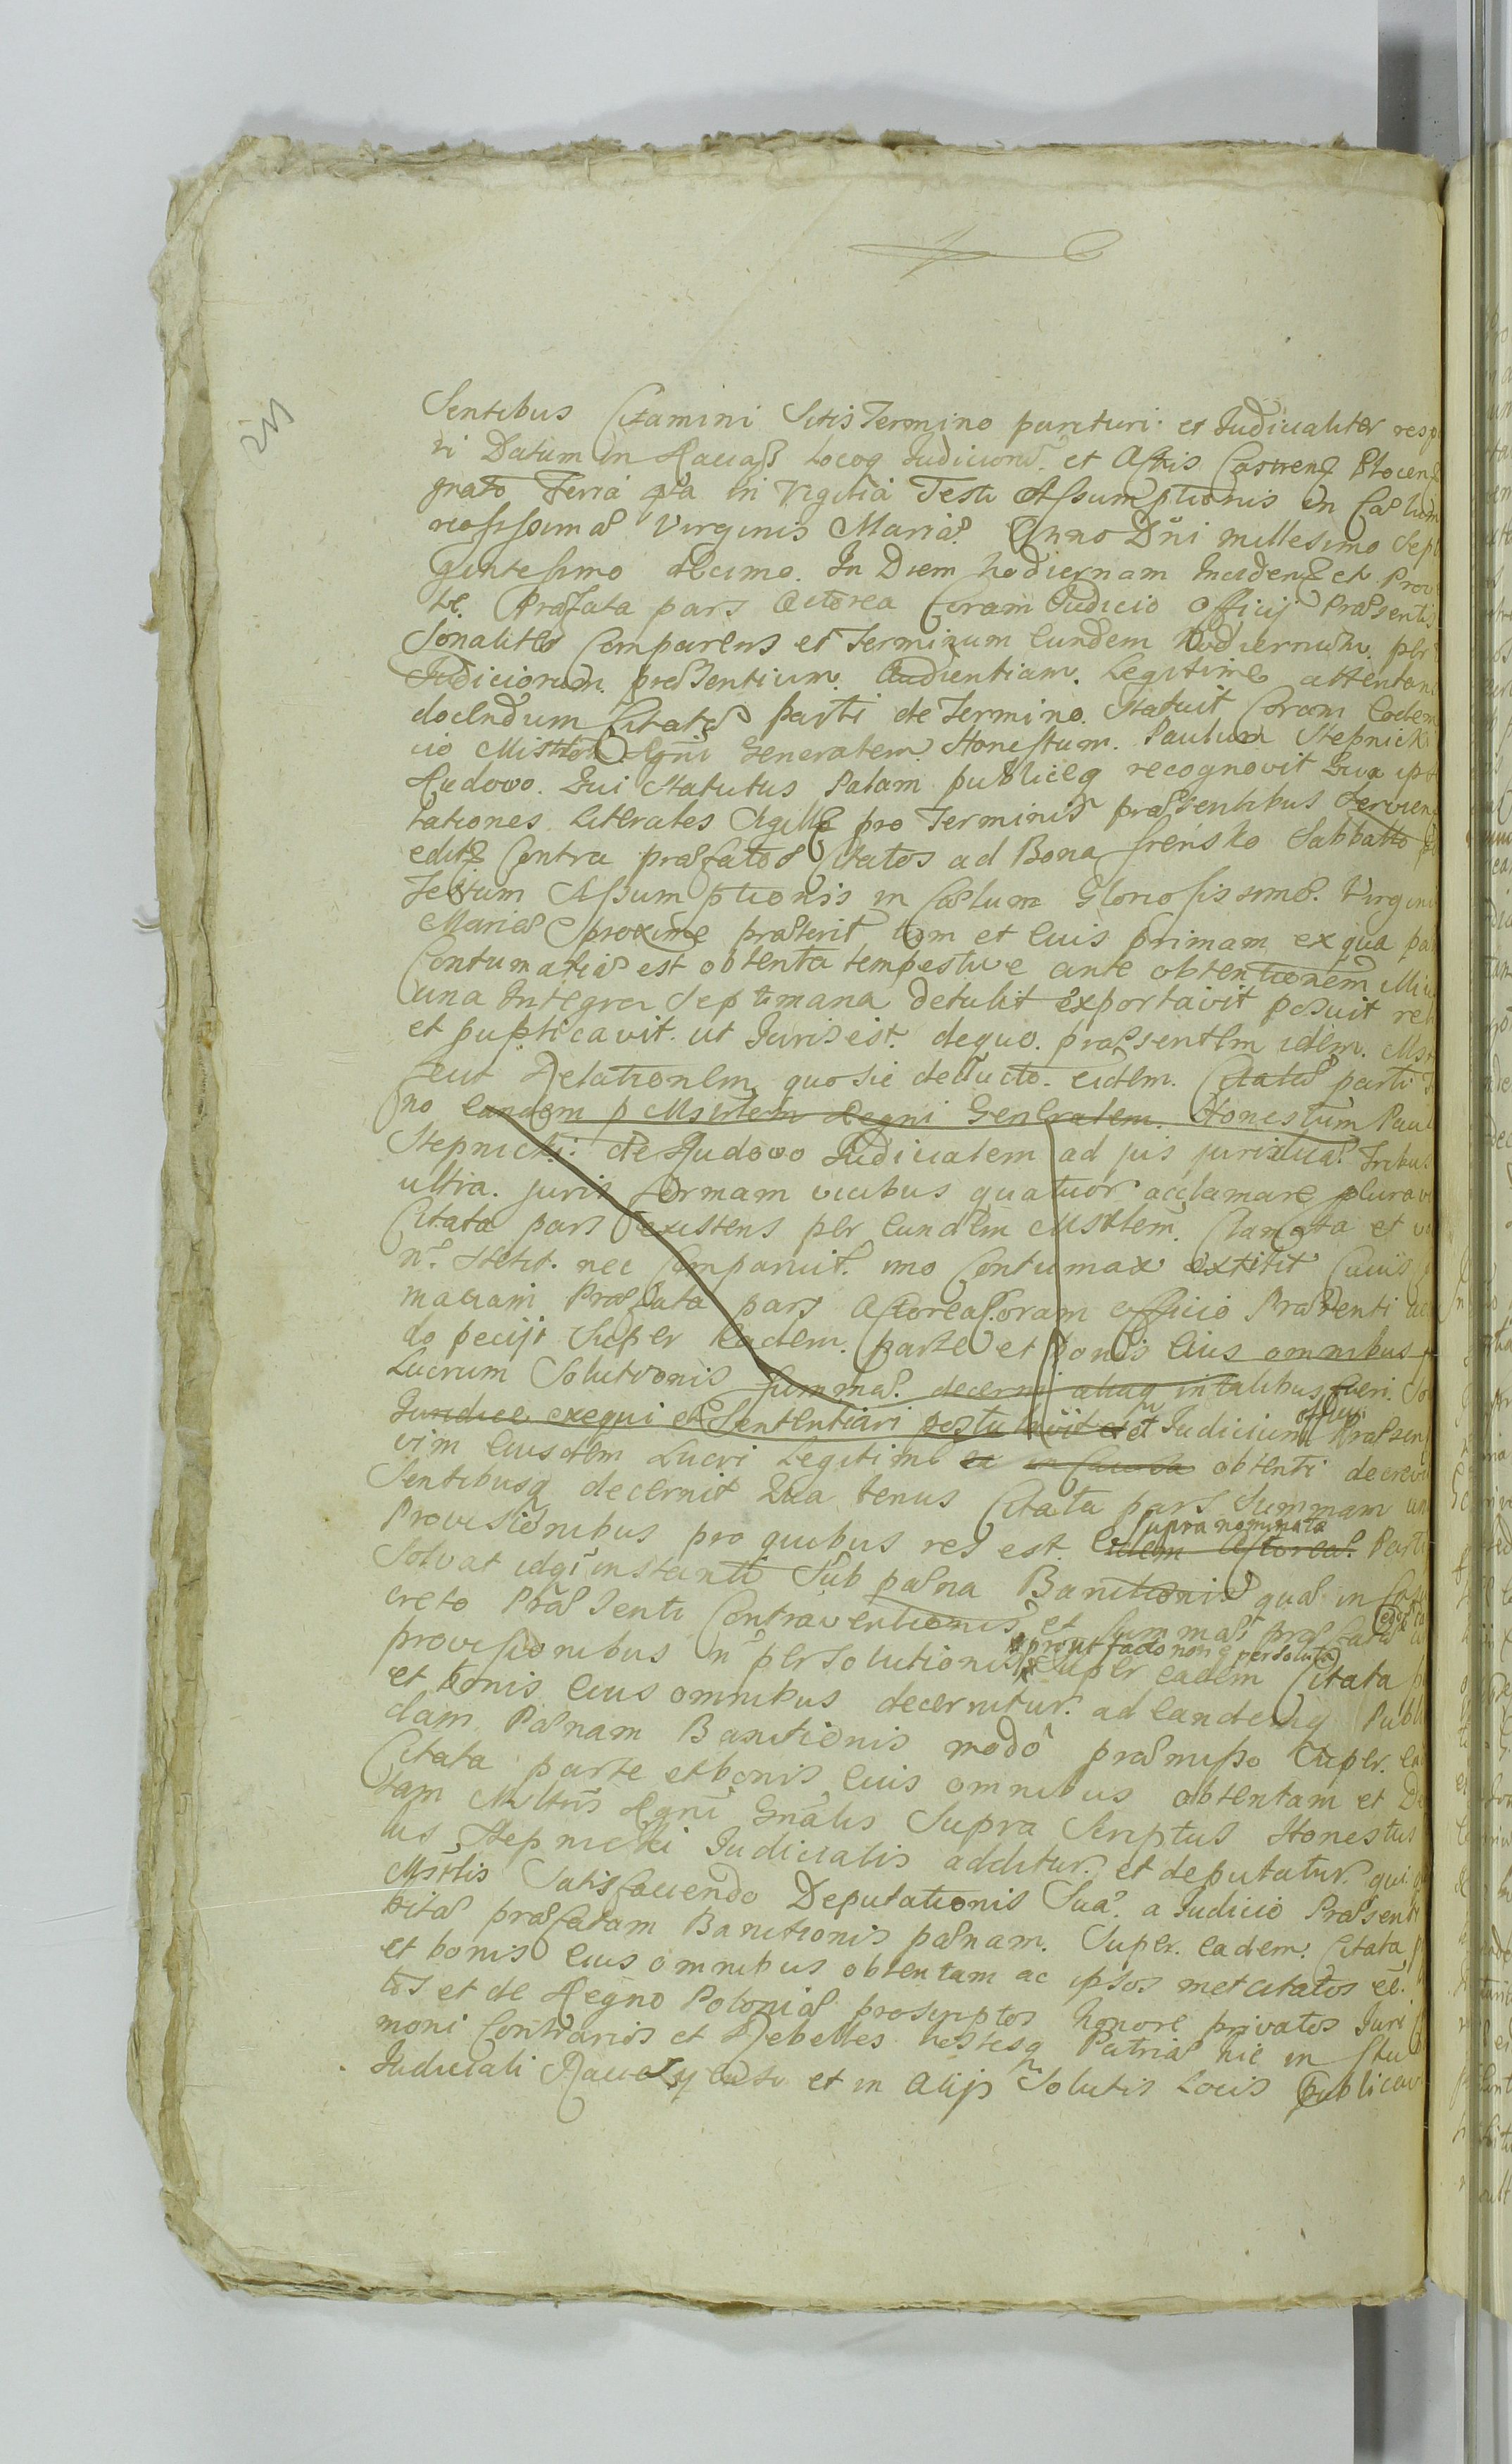 Sentibus Citamini Sitis Termino parituri et Judicialiter resp
ri Datum in Raciąsz Locoq Judiciorũ et Actis Castrenſ Plocenſ
grato Feria qta in Vigilia Festi Aſsumptionis in Cælum
rioſiſsimæ Virginis Mariæ Anno Dñi millesimo Sept
genteſimo decimo. In Diem hodiernam Incidenſ et Prov
te. Præfata pars Actorea Coram Judicio Officij Præsentis
Sonaliter Comparens et Terminum eundem hodiernum per
Judiciorum præsentium Audientiam Legitime attentan
docendum Citatæ parti de Termino Statuit Coram Eodem
cio Mistrlem Rgni Generalem Honeſtum Paulum Stepnicki
Rudowo. Qui Statutus Palam publiceq recognovit Quia ipse
tationes Literales Sigill pro Terminis præsentibus Servien
edit Contra præfatos Citatos ad Bona Srensko Sabbatto
Festum Aſsumptionis in Cælum Glorioſissimæ Virginis
Mariæ proxime præterit tum et Cuis primam ex qua pa
Contumaciæ est obtenta tempestive ante obtentionem illius
una Integra Septimana detulit exportavit posuit reli
et publicavit ut Juris est. de quo præsentem idem Mst
fecit Relationem quo sic deducto eidem Citatæ parti T
no eandem p Mistrlem Regni Generalem Honestum Paul
Stepnicki de Rudowo Judicialem ad jus juridica Tribus
ultra juris formam vicibus quatuor acclamare plurav
Citata pars existens per eundem Mstrlem Clamata et v
nõ Stetit nec Comparuit imo Contumax extitit Cuius
maciam Præfata pars Actorea Coram officio Præsenti ac
do pecijt Super Eadem parte et bonis Eius omnibus
Lucrum Solutionis Summæ decerni aliaq in talibus fieri So
Juridice exequi et Sententiari postulavit et et Judicium officij Præsen
vim Eiusdem Lucri Legitime ex in Causa obtenti decrevit
Sentibusq decernit Qua tenus Citata pars Summam un
Provisionibus pro quibus res est. eidem Actoreæ supra nominata Parti
Solvat idq instanti Sub pæna Banitionis quæ in Casu
creto Præsenti Contraventionis et Summæ præfatæ
provisionibus nõ persolutionis prout facto non e persoluta Super eadem Citata
et bonis Eius omnibus decernitur ad eandemq Publi
dam Pænam Banitionis modo præmiſso Super ea
Citata parte et bonis Eius omnibus obtentam et De
tam Mistrlis Rgni Gñalis Supra Scriptus Honestus
lus Stepnicki Judicialis additur et deputatur qui
Mstrlis Satisfaciendo Deputationis Suæ a Judicio Præsenti
bitæ præfatam Banitionis pænam Super eadem Citata
et bonis Eius omnibus obtentam ac ipsos met citatos
tos et de Regno Poloniæ proscriptos honore privatos Juri
moni Contrarios et Rebelles hostesq Patriæ hic in Stu
Judiciali et in Alijs Solutis Locis publicav